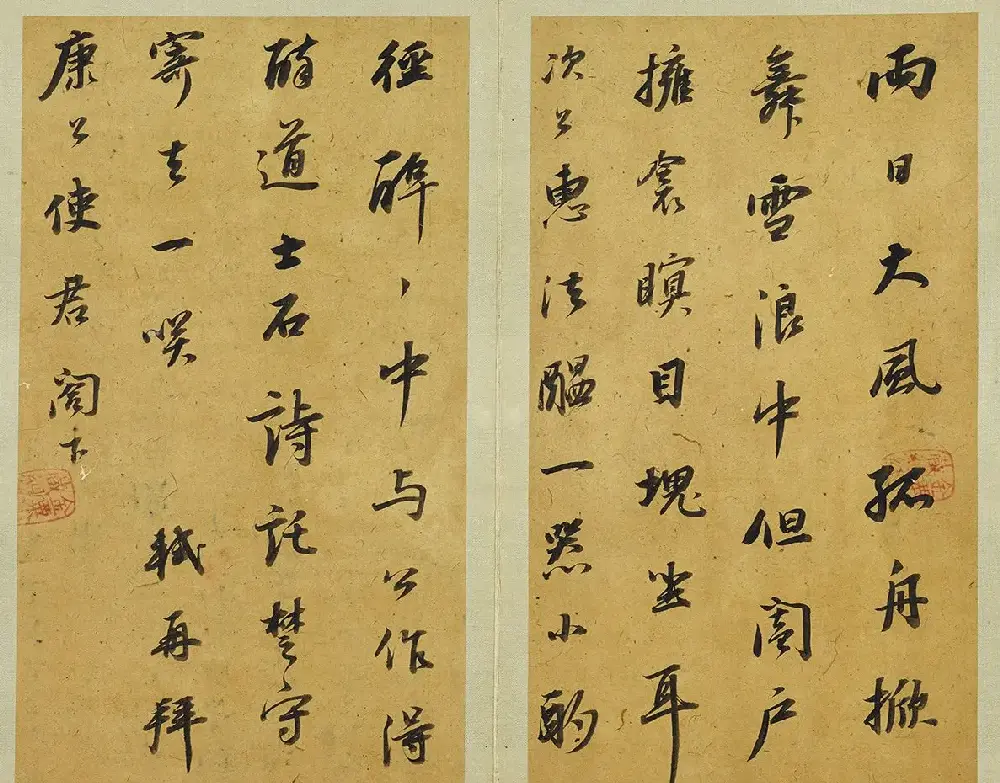 兩日大風孤舟掀
舞雪浪中但闔户
擁衾瞑目塊坐耳
次公惠法醖一器小酌
徑醉、中与公作得
醉道士石詩託楚守
寄去一笑 軾再拜
康公使君閤下